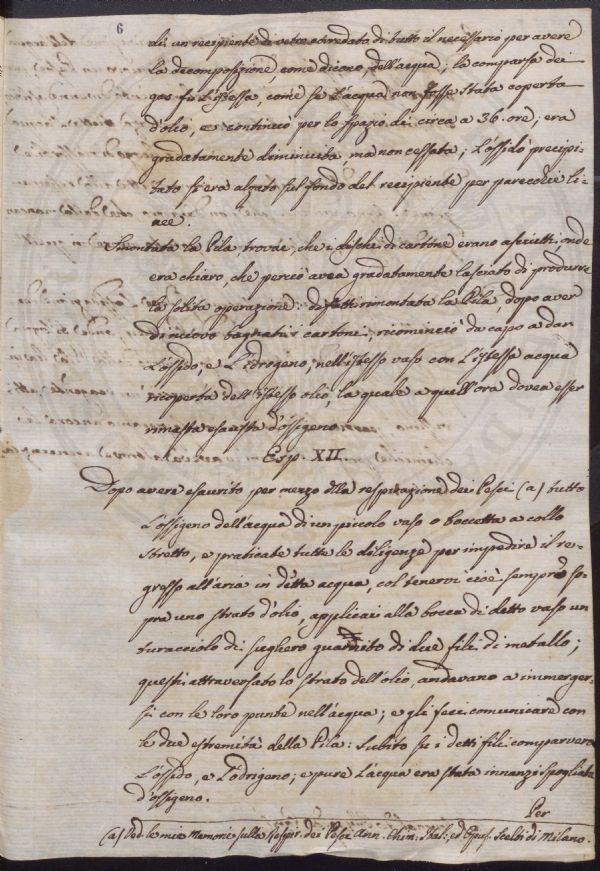 6
di un recipiente di vetro corredato di tutto il necessario per avere
la decomposizione come dicono dell'acqua; la comparsa dei
gas fu l'istessa, come se l'acqua non fosse stata coperta
d'olio, e continuò per lo spazio di circa a 36. ore; era
gradatamente diminuita ma non cessata; l'ossido precipi-
tato si era alzato sul fondo del recipiente per parecchie li-
nee.
Smontata la Pila trovai, che i dischi di cartone erano asciutti, onde
era chiaro, che perciò avea gradatamente lasciato di produrre
la solita operazione: di fatti rimontata la Pila, dopo aver
di nuovo bagnati i cartoni, ricominciò da capo a dar
l'ossido, e l'idrogeno, nell'istesso vaso con l'istessa acqua
ricoperta dell'istesso olio, la quale a quell'ora dovea esser
rimasta esausta d'ossigeno.
Esp. XII.
Dopo avere esaurito per mezzo della respirazione dei Pesci (a) tutto
l'ossigeno dell'acqua di un piccolo vaso o boccetta a collo
stretto, e praticate tutte le diligenze per impedire il re-
gresso all'aria in detta acqua, col tenervi cioè sempre so-
pra uno strato d'olio, applicai alla bocca di detto vaso un
turacciolo di sughero guarnito di due fili di metallo;
questi attraversato lo strato dell'olio, andavano a immerger-
si con le loro punte nell'acqua; e gli feci comunicare con
le due estremità della Pila: subito su i detti fili comparvero
l'ossido, e l'odrigeno; e pure l'acqua era stata innanzi spogliata
d'ossigeno.
Per
(a) Ved. le mie Memorie sulla Respir. dei Pesci Ann. Chim. Ital:, ed Opus. Scelti di Milano.